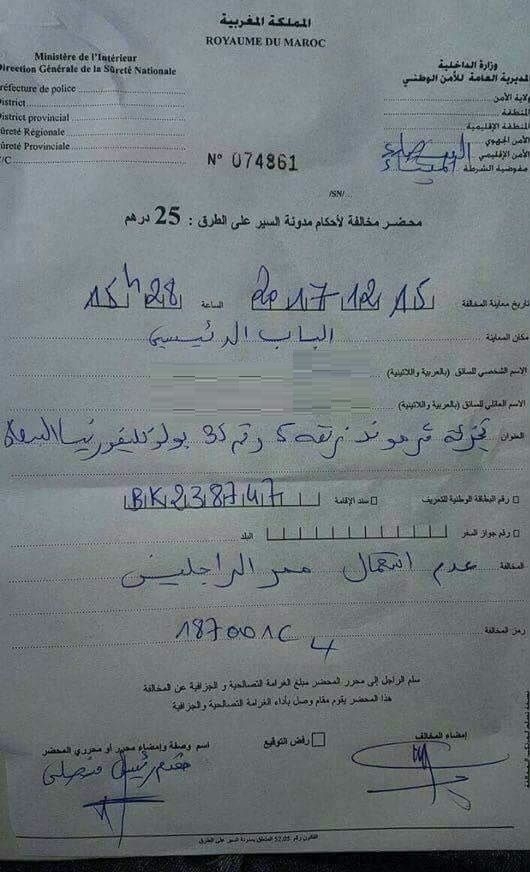 المملكة المغربية
ROYAUME DU MAROC
Ministère de l'Intérieur
Direction Générale de la Sûreté Nationale
Préfecture de police
District
District provincial
Sûreté Régionale
Sûreté Provinciale
C/C
وزارة الداخلية
المديرية العامة للأمن الوطني
ولاية الأمن
المنطقة
المنطقة الإقليمية
الأمن الجهوي
الأمن الإقليمي
مفوضية الشرطة
البيضاء
الميناء
N° 074861
/SN/
محضر مخالفة لأحكام مدونة السير على الطرق : 25 درهم
تاريخ معاينة المخالفة 2017-12-15 الساعة 15h28
مكان المعاينة الباب الرئيسي
الاسم الشخصي للسائق (بالعربية واللاتينية)
الاسم العائلي للسائق (بالعربية واللاتينية)
العنوان زنقة 5 رقم 35 كليفورنيا
رقم البطاقة الوطنية للتعريف سند الإقامة BK238747
رقم جواز السفر البلد
المخالفة عدم استعمال ممر الراجلين
رمز المخالفة 187001C4
سلم الراجل إلى محرر المحضر مبلغ الغرامة التصالحية و الجزافية عن المخالفة
هذا المحضر يقوم مقام وصل بأداء الغرامة التصالحية والجزافية
إمضاء المخالف
رفض التوقيع
اسم وصفة وإمضاء محرر أو محرري المحضر
مقدم رئيس
القانون رقم 52.05 المتعلق بمدونة السير على الطرق